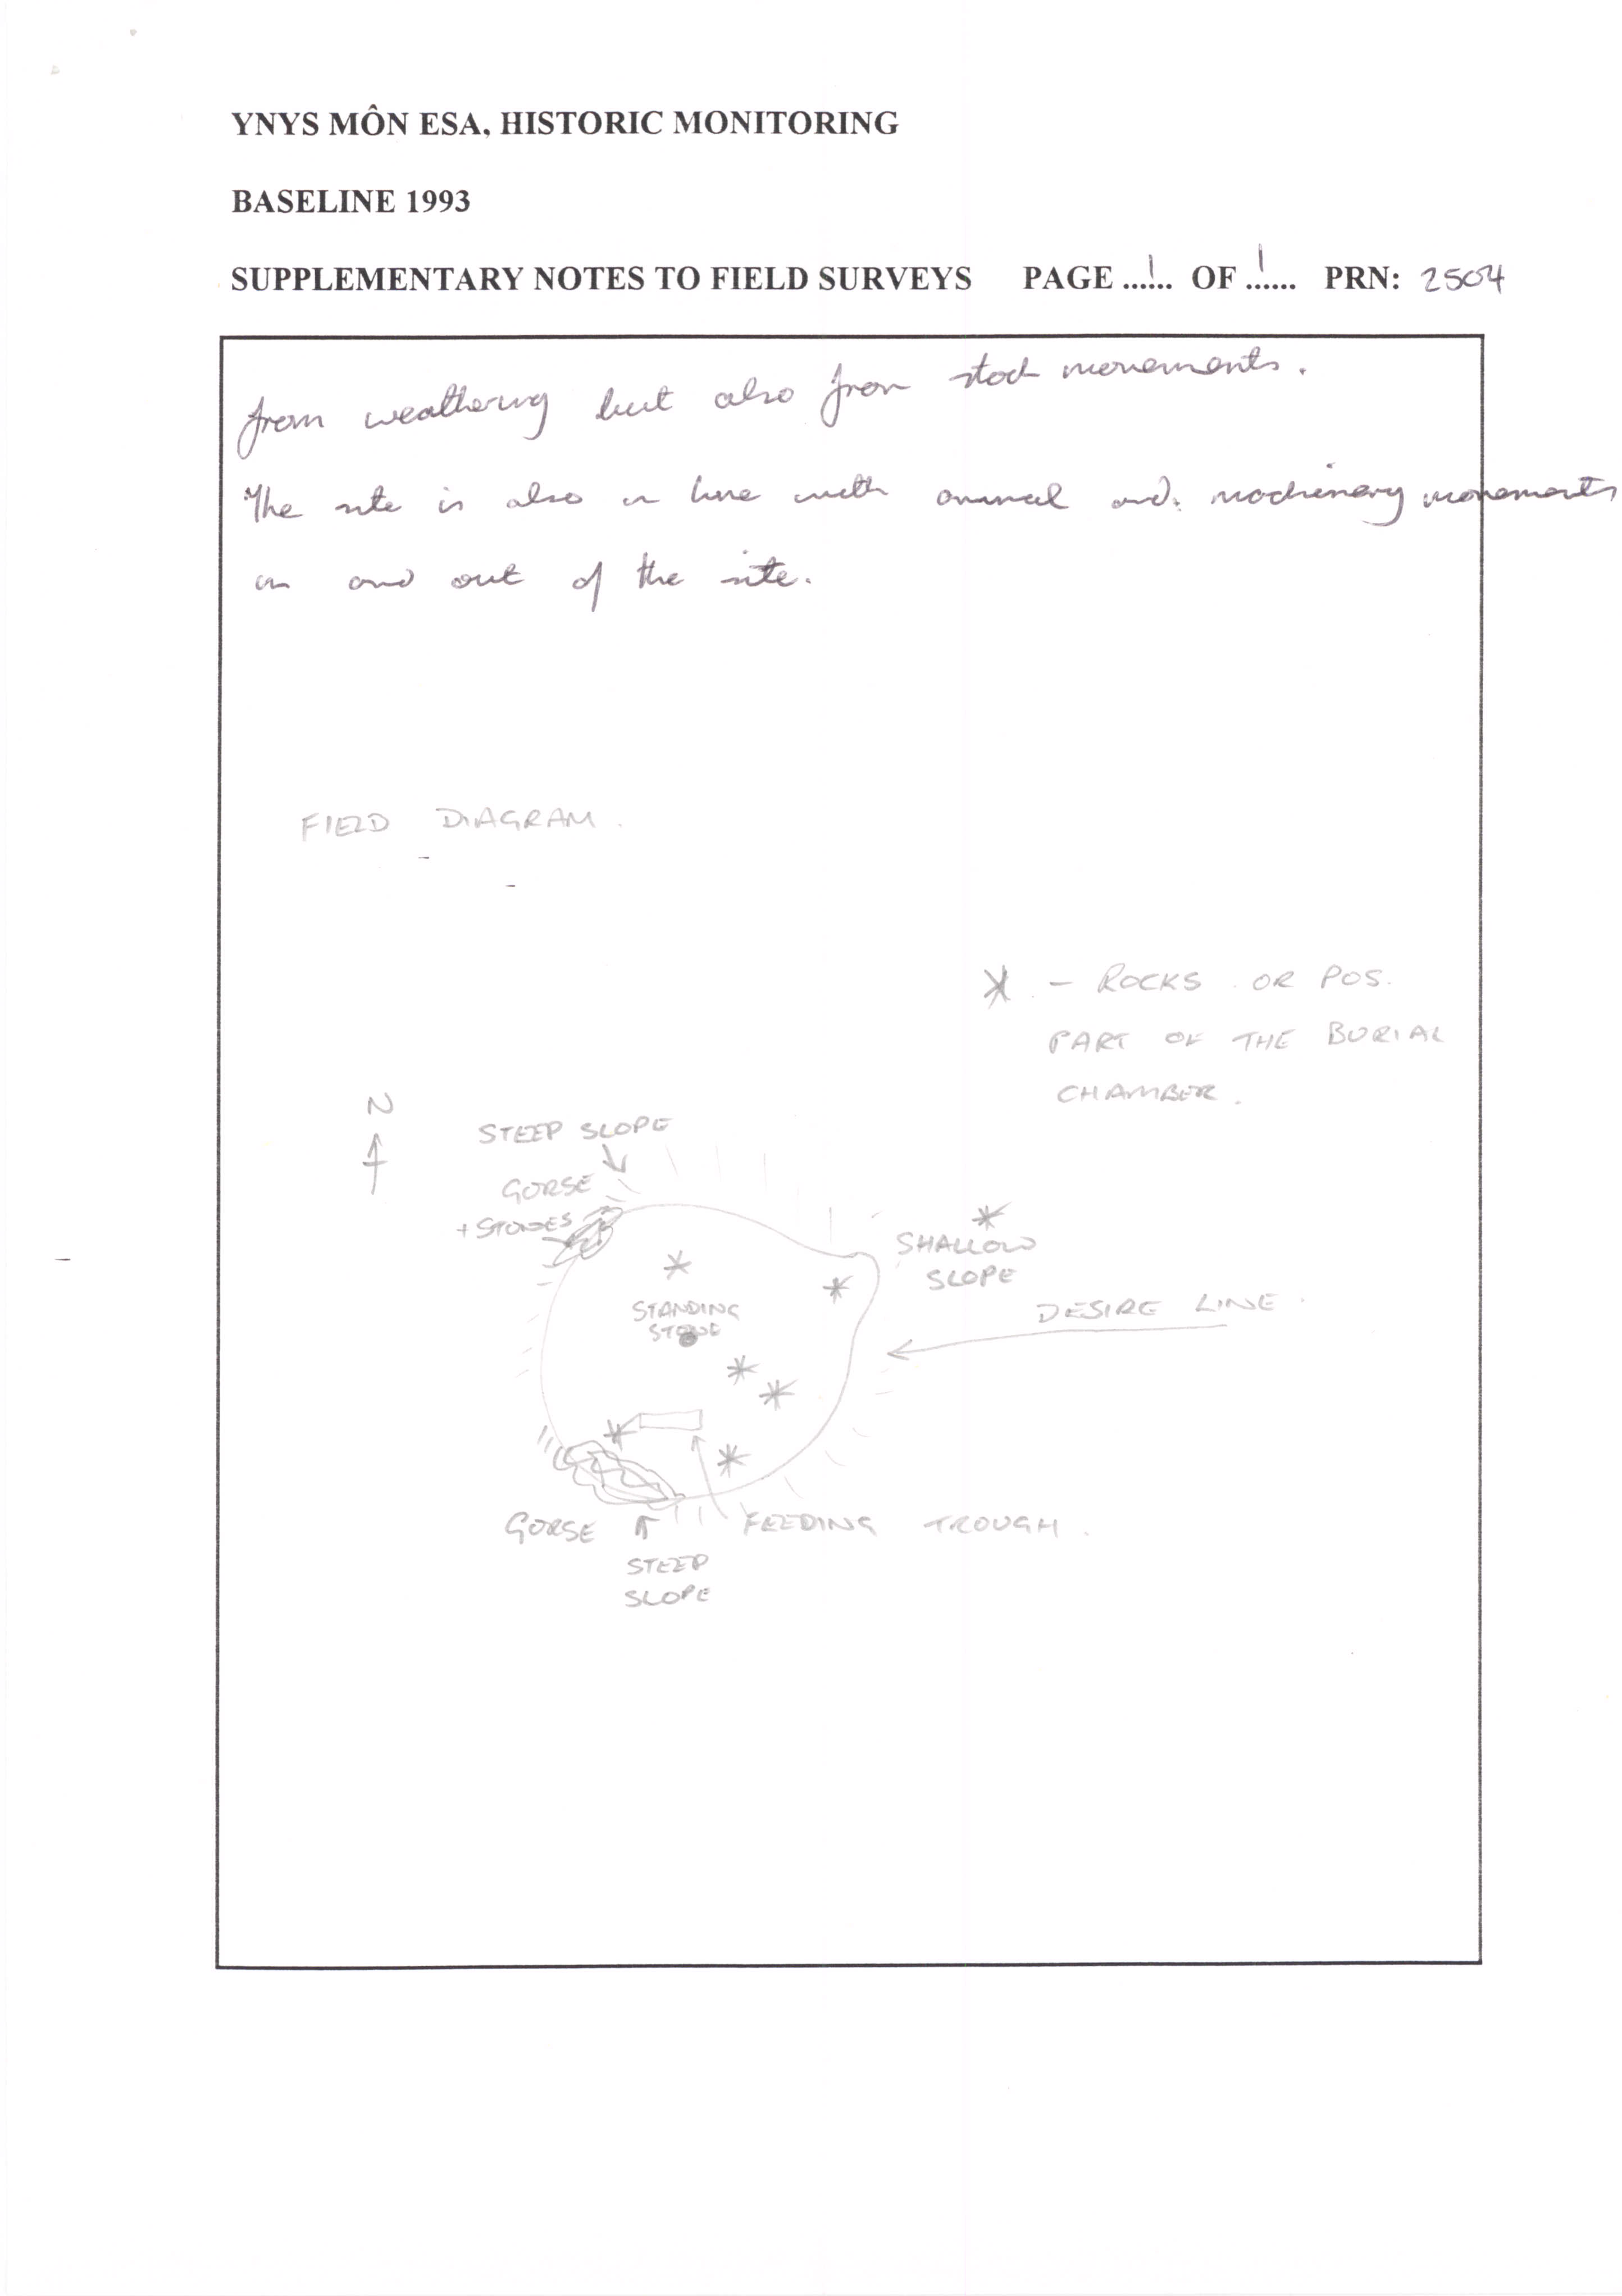 YNYS MÔN ESA, HISTORIC MONITORING
BASELINE 1993
SUPPLEMENTARY NOTES TO FIELD SURVEYS PAGE ...1... OF ...1... PRN: 2504
from weathering but also from stock movements.
The site is also in line with animal and machinery movements
in and out of the site.
FIELD DIAGRAM.
* - ROCKS OR POS.
PART OF THE BURIAL
CHAMBER.
N
STEEP SLOPE
GORSE
+ STONES
SHALLOW
SLOPE
STANDING
STONE
DESIRE LINE.
GORSE
FEEDING TROUGH.
STEEP
SLOPE